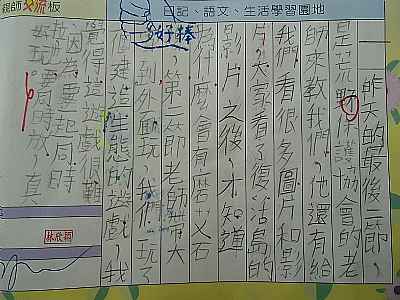 親師交流板
日記、語文、生活學習園地
好棒
昨天的最後一節、
是荒野保護協會的老
師來教我們、他還有給
我們看很多圖片和影
片、大家看了復活島的
影片之後、才知道
什麼會有磨艾石
、第二節老師帶大
到外面玩、我們玩了
建造生態的遊戲、我
覺得這遊戲很難
因為要一起同時
要同時放、真
好玩。